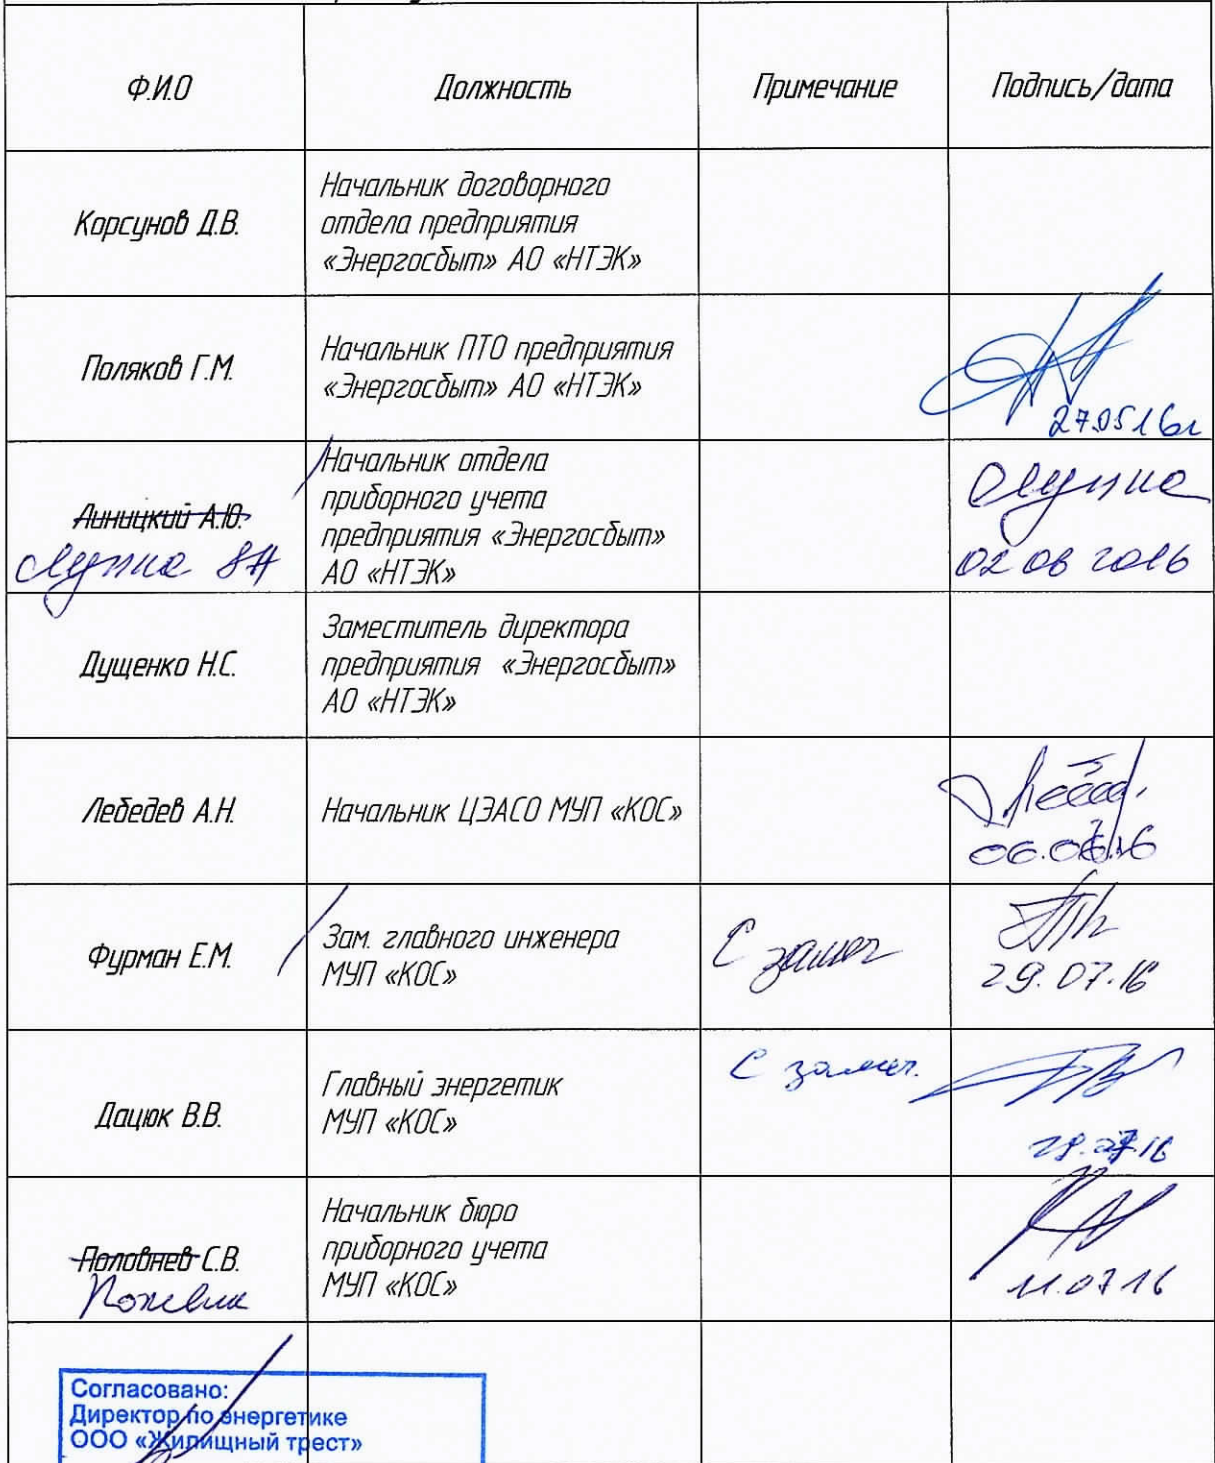 Ф.И.О
Должность
Примечание
Подпись/дата
Корсунов Д.В.
Начальник договорного
отдела предприятия
«Энергосбыт» АО «НТЭК»
Поляков Г.М.
Начальник ПТО предприятия
«Энергосбыт» АО «НТЭК»
27.05.16г
Линицкий А.Ю.
Начальник отдела
приборного учета
предприятия «Энергосбыт»
АО «НТЭК»
02 06 2016
Дущенко Н.С.
Заместитель директора
предприятия «Энергосбыт»
АО «НТЭК»
Лебедев А.Н.
Начальник ЦЭАСО МУП «КОС»
Фурман Е.М.
Зам. главного инженера
МУП «КОС»
С замеч
29.07.16
Дацюк В.В.
Главный энергетик
МУП «КОС»
С замеч.
29.07.16
Половнев С.В.
Начальник бюро
приборного учета
МУП «КОС»
11.07.16
Согласовано:
Директор по энергетике
ООО «Жилищный трест»